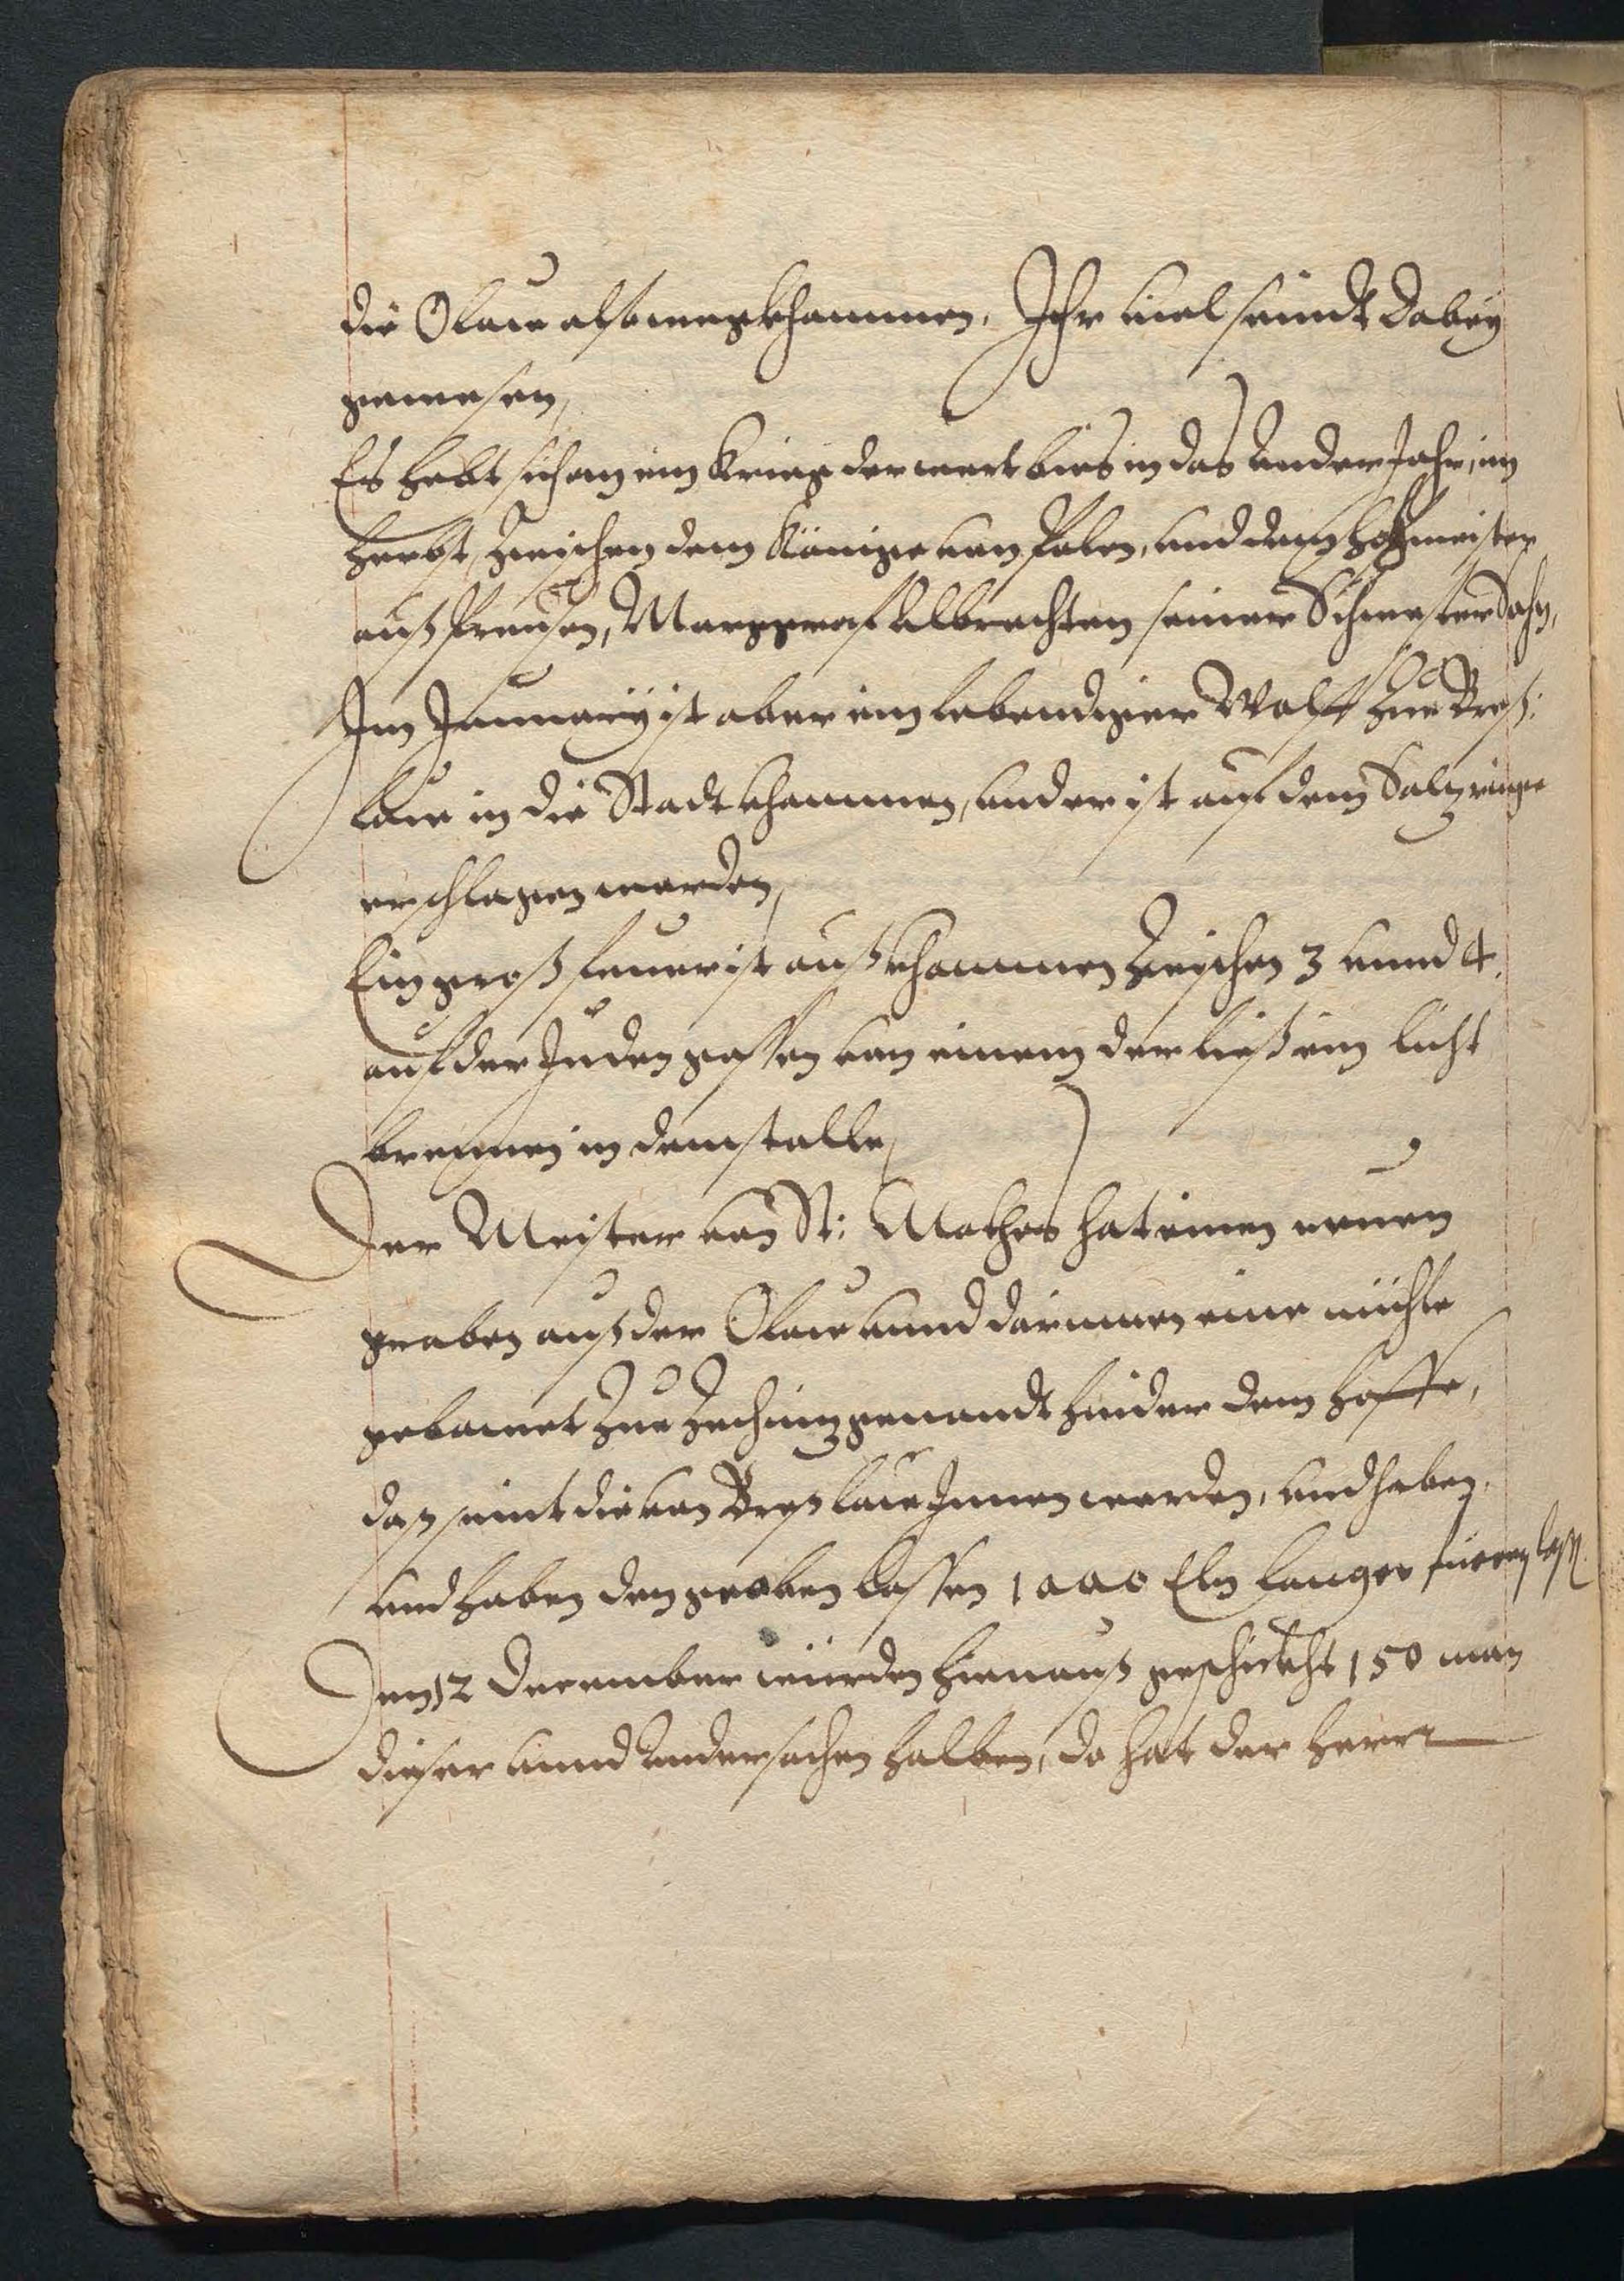 die Olaw also wegkhommen. Ihr viel seindt dabey
gewesen,
Es hebt sich an ein Krieg der wert bies in das Ander Jahr, im
Herbst, zwischen dem Könige von Polen, und dem Hochmeister
auß Preusen, Marggraf Albrechten seiner Schwester Sohn,
Im January ist aber ein lebendiger Wolff zue Breß:
law in die Stadt khommen, und er ist auf dem Salzringe
erschlagen worden,
Ein groß feuer ist auß khommen zwischen 3 unnd 4.
auf der Juden gassen von einem der ließ ein licht
brennen in dem stalle,
Der Meister von St: Mathes hat einen neuen
graben auß der Olaw unnd darinnen eine mühle
gebawet zue Zeching genandt hinder dem hoffe,
daß seint die von Breßlaw Innen worden, und haben,
und haben den graben lassen 1000 Eln langer füeren laß.
Den 12 December würden hienauß geschickht 150 man
dieser unnd Ander sachen halben, da hat der Herr